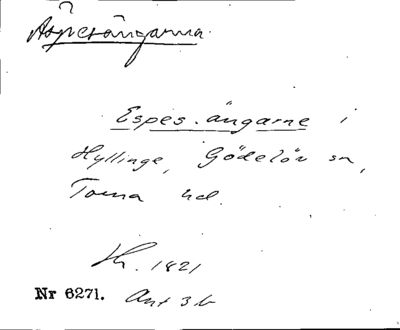 Aspesängarna.
Espes-ängarne i
Hyllinge, Gödelöv sn,
Torna hd.
1821
Nr 6271. Ant 3 b